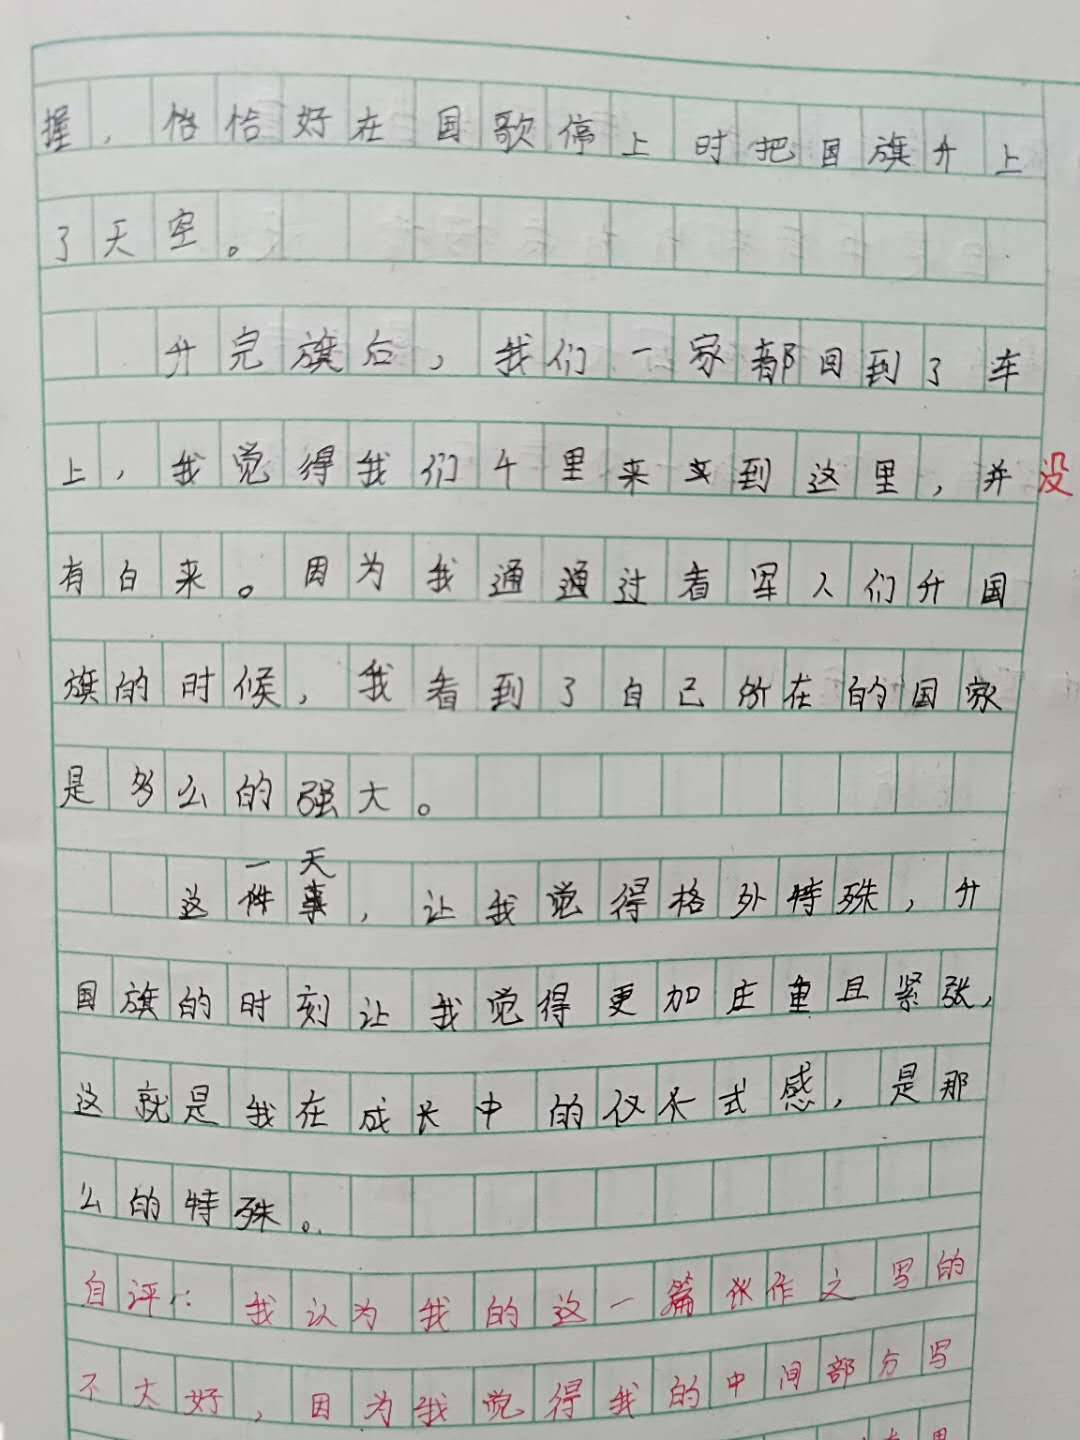 握，恰恰好在国歌停止时把国旗升上
了天空。
升完旗后，我们一家都回到了车
上，我觉得我们千里来到这里，并没
有白来。因为我通通过看军人们升国
旗的时候，我看到了自己所在的国家
是多么的强大。
一天
这件事，让我觉得格外特殊，升
国旗的时刻让我觉得更加庄重且紧张，
这就是我在成长中的仪式感，是那
么的特殊。
自评：我认为我的这一篇作文写的
不太好，因为我觉得我的中间部分写